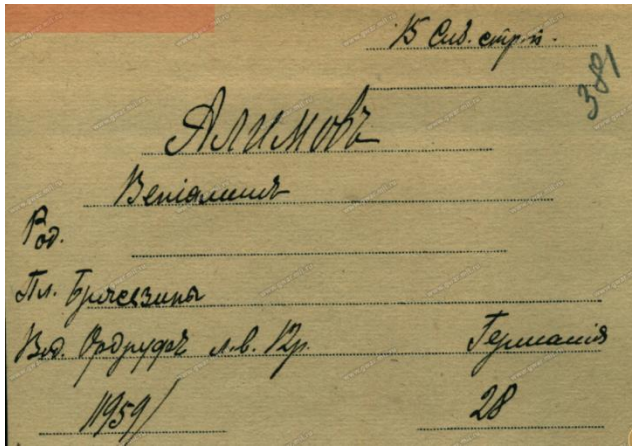 15 Сиб. стр. п.
381
Алимовъ
Веніаминъ
Род.
Пл. Бржезины
Вод. Ордруфъ л. в. 12р.
Германія
11959/
28